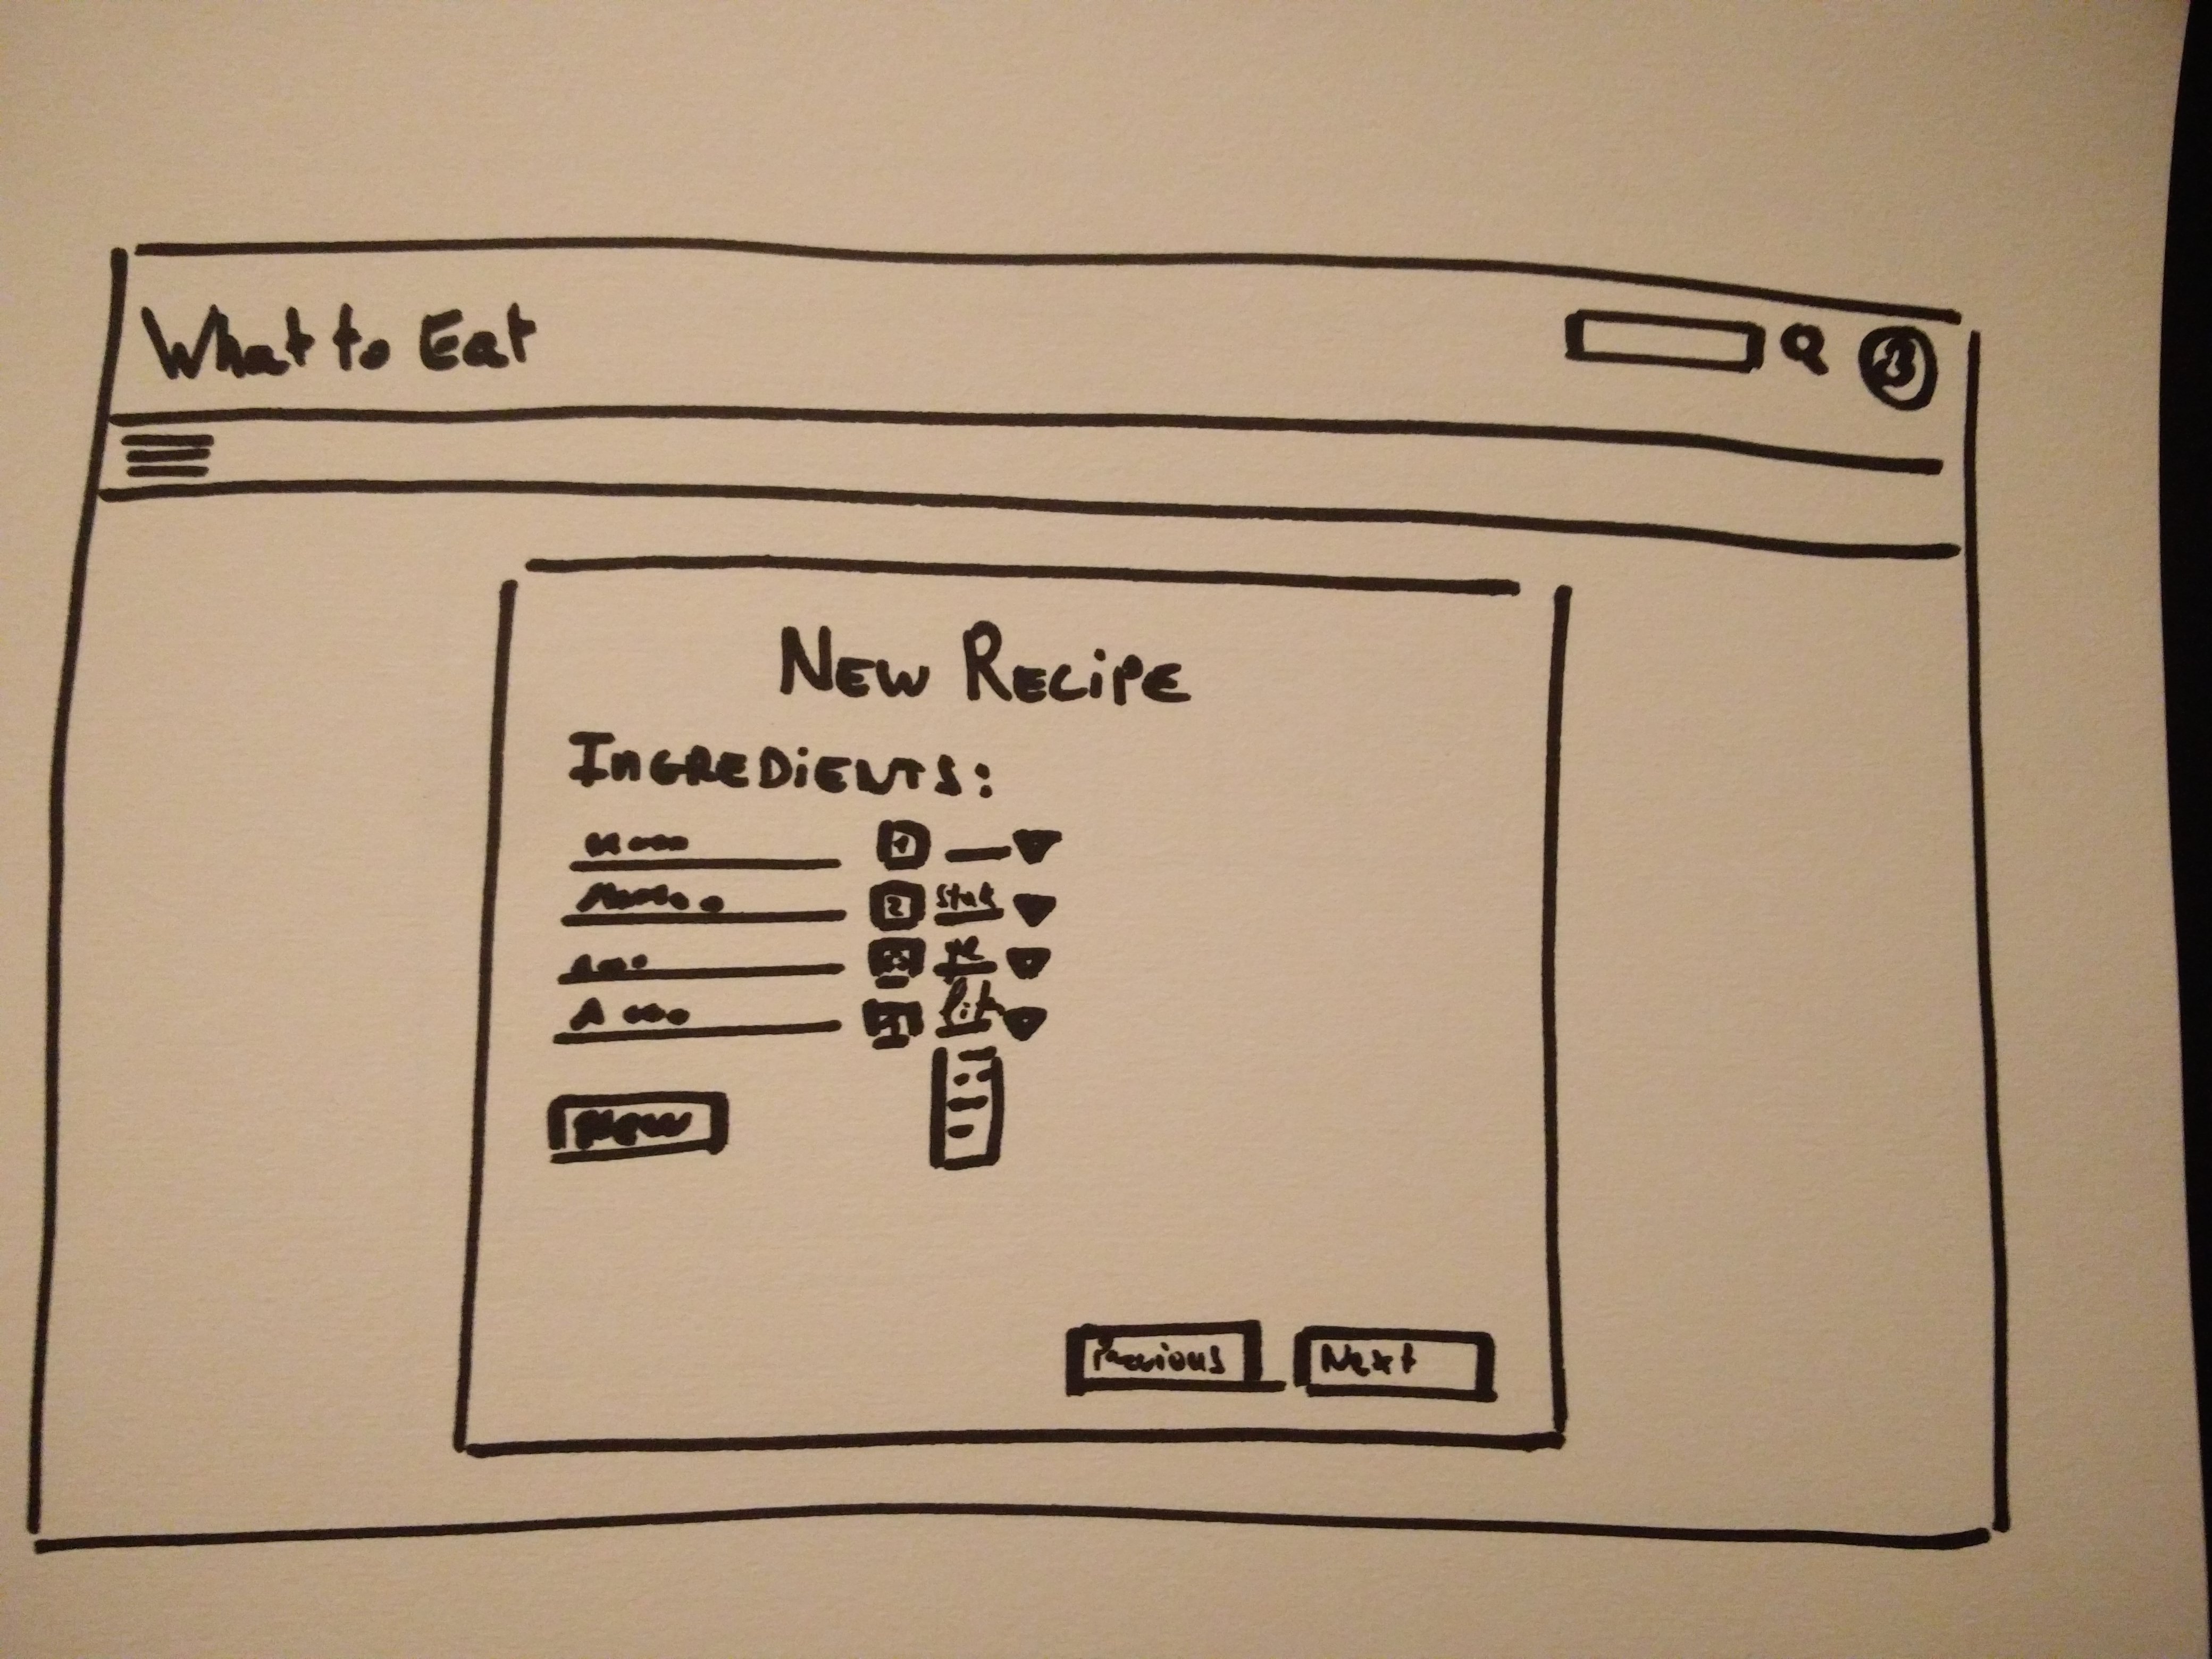 What to Eat
New Recipe
Ingredients:
1
2 Stuk
lit
New
Previous Next